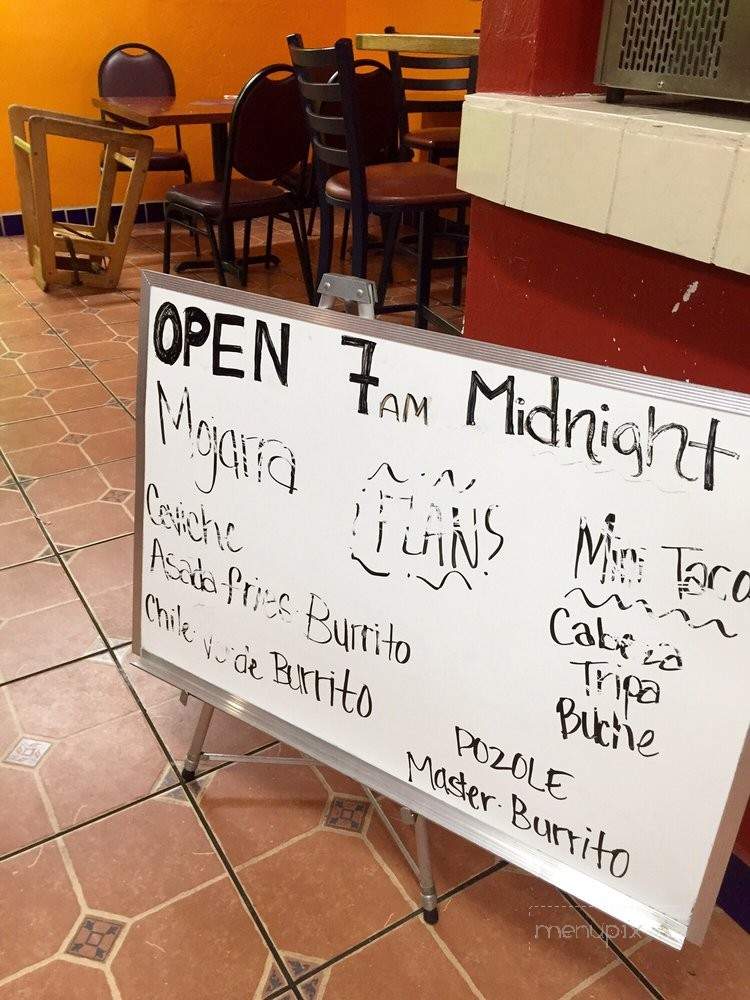 OPEN 7AM Midnight
Mojarra
FLANS
Ceviche
Asada-fries-Burrito
Chile-Verde Burrito
Mini Taco
Cabeza
Tripa
Buche
POZOLE
Master-Burrito
menupix